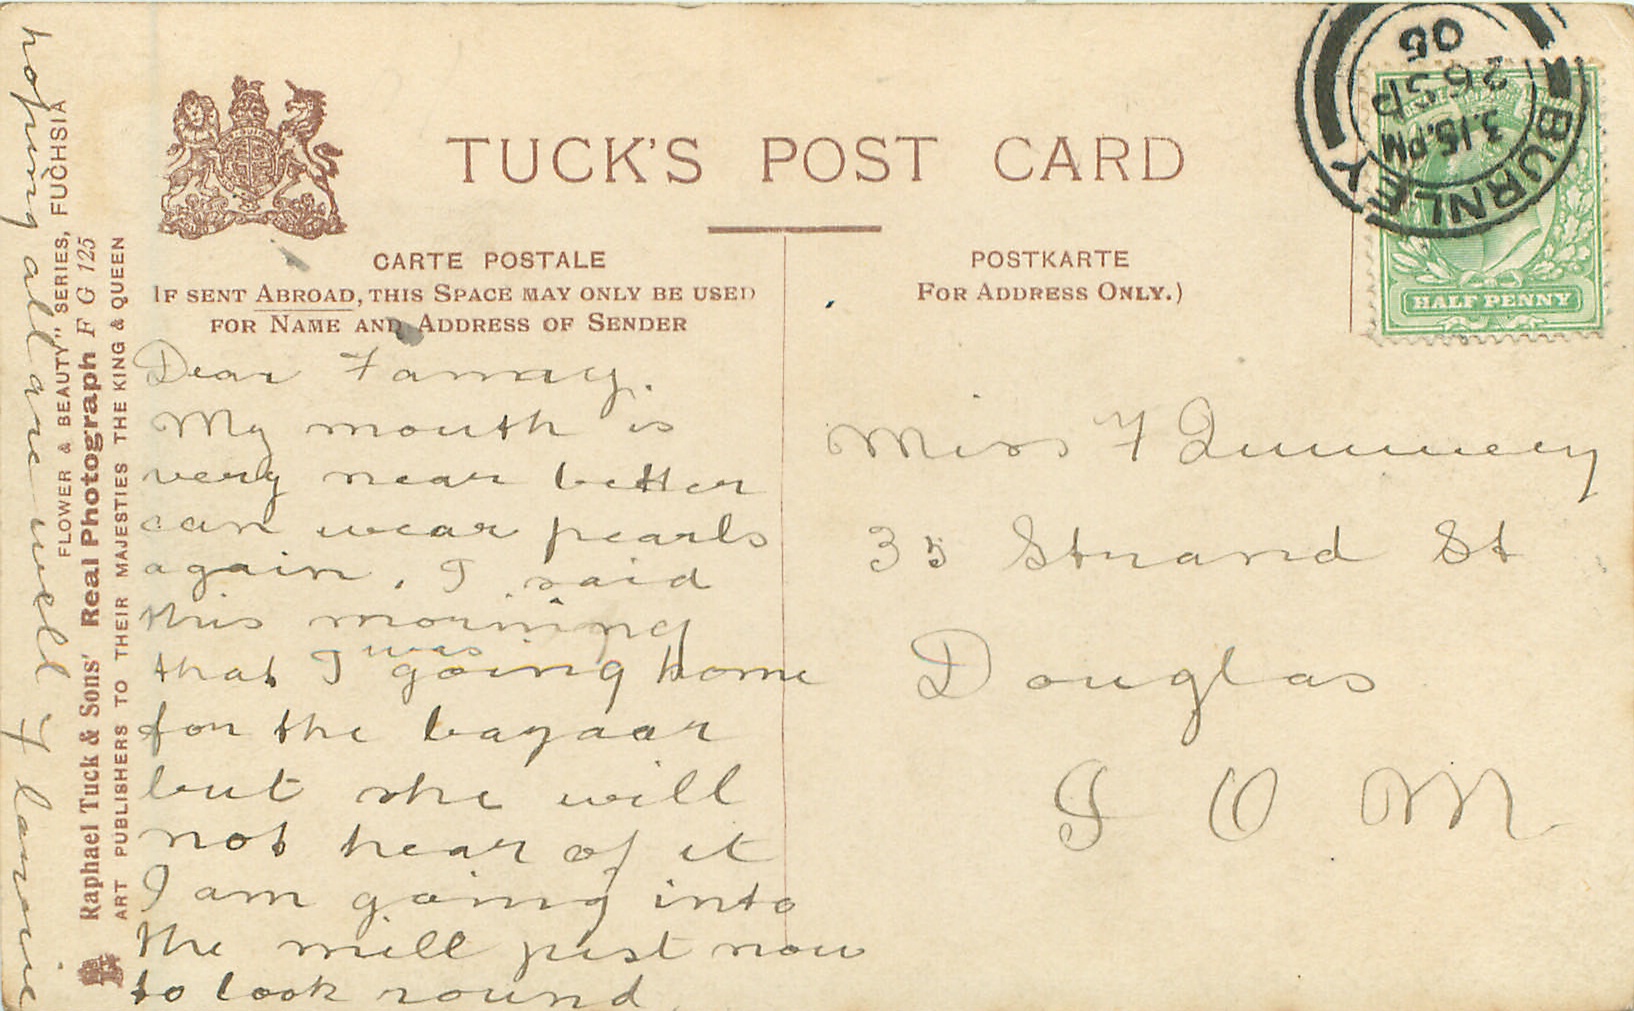 TUCK'S POST CARD
CARTE POSTALE
IF SENT ABROAD, THIS SPACE MAY ONLY BE USED
FOR NAME AND ADDRESS OF SENDER
POSTKARTE
FOR ADDRESS ONLY.)
BURNLEY
3.15.PM
26 SP
05
HALF PENNY
Dear Fanny.
My mouth is
very near better
can wear pearls
again. I said
this morning
that I was going home
for the bazaar
but she will
not hear of it
I am going into
the mill just now
to look round.
hoping all are well F
Miss F
35 Strand St
Douglas
I O M
FLOWER & BEAUTY" SERIES, FUCHSIA
Raphael Tuck & Sons' Real Photograph F G 125
ART PUBLISHERS TO THEIR MAJESTIES THE KING & QUEEN